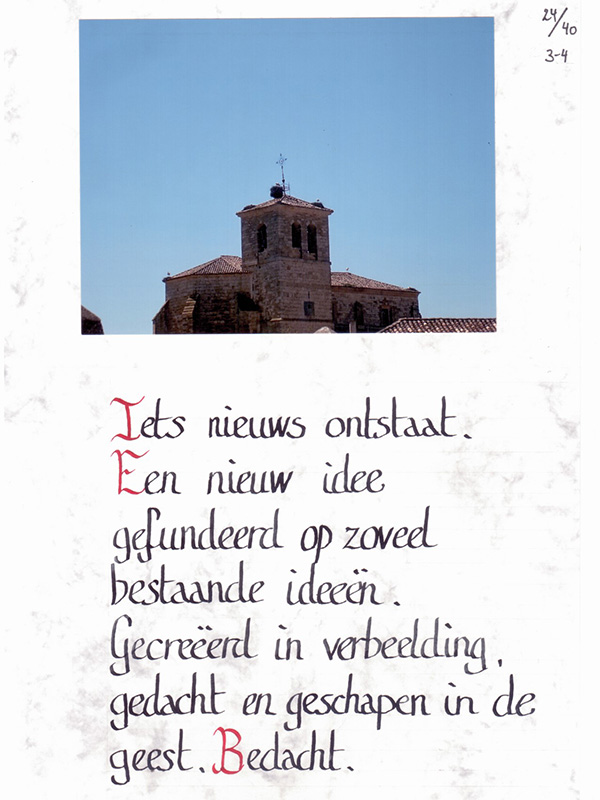 24/40
3-4
Iets nieuws ontstaat.
Een nieuw idee
gefundeerd op zoveel
bestaande ideeën.
Gecreëerd in verbeelding,
gedacht en geschapen in de
geest. Bedacht.